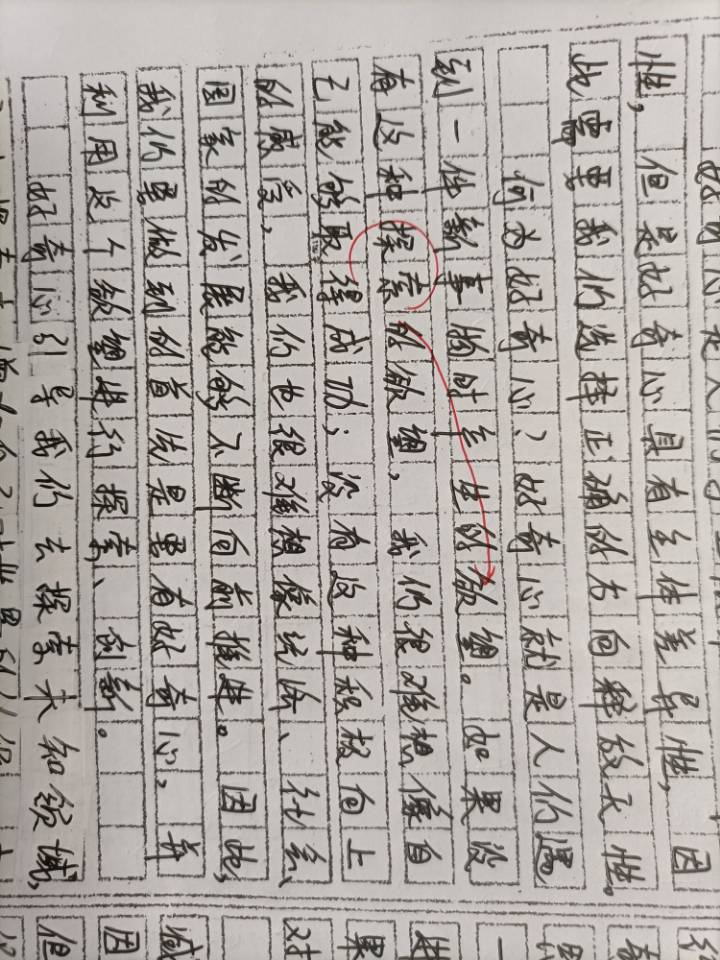 性，但是好奇心具有主体差异性，因
此需要我们选择正确的方向释放天性。
何为好奇心？好奇心就是人们遇
到一件新事物时产生的欲望。如果没
有这种探索的欲望，我们很难想像自
己能够取得成功；没有这种积极向上
的态度，我们也很难想像经济、社会、
国家的发展能够不断向前推进。因此，
我们要做到的首先是要有好奇心，并
利用这个欲望进行探索、创新。
好奇心引导我们去探索未知领域，